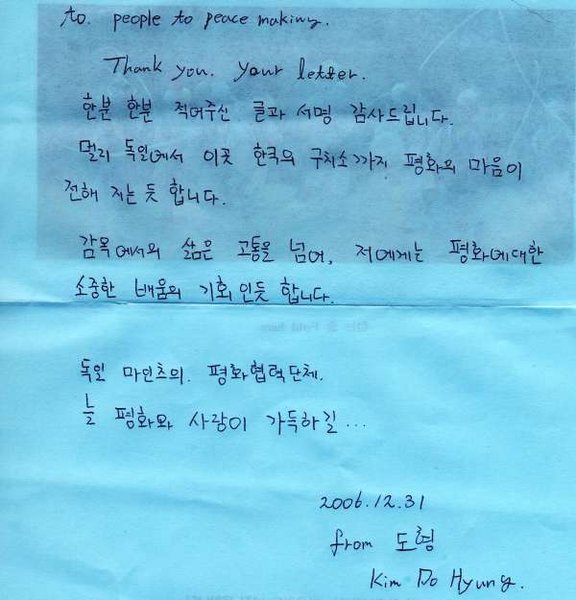 to. people to peace making.
Thank you. Your letter.
한분 한분 적어주신 글과 서명 감사드립니다.
멀리 독일에서 이곳 한국의 구치소까지 평화의 마음이
전해 지는 듯 합니다.
감옥에서의 삶은 고통을 넘어, 저에게는 평화에대한
소중한 배움의 기회 인듯 합니다.
독일 마인츠의. 평화협력단체.
늘 평화와 사랑이 가득하길...
2006.12.31
from 도형
Kim Do Hyung.